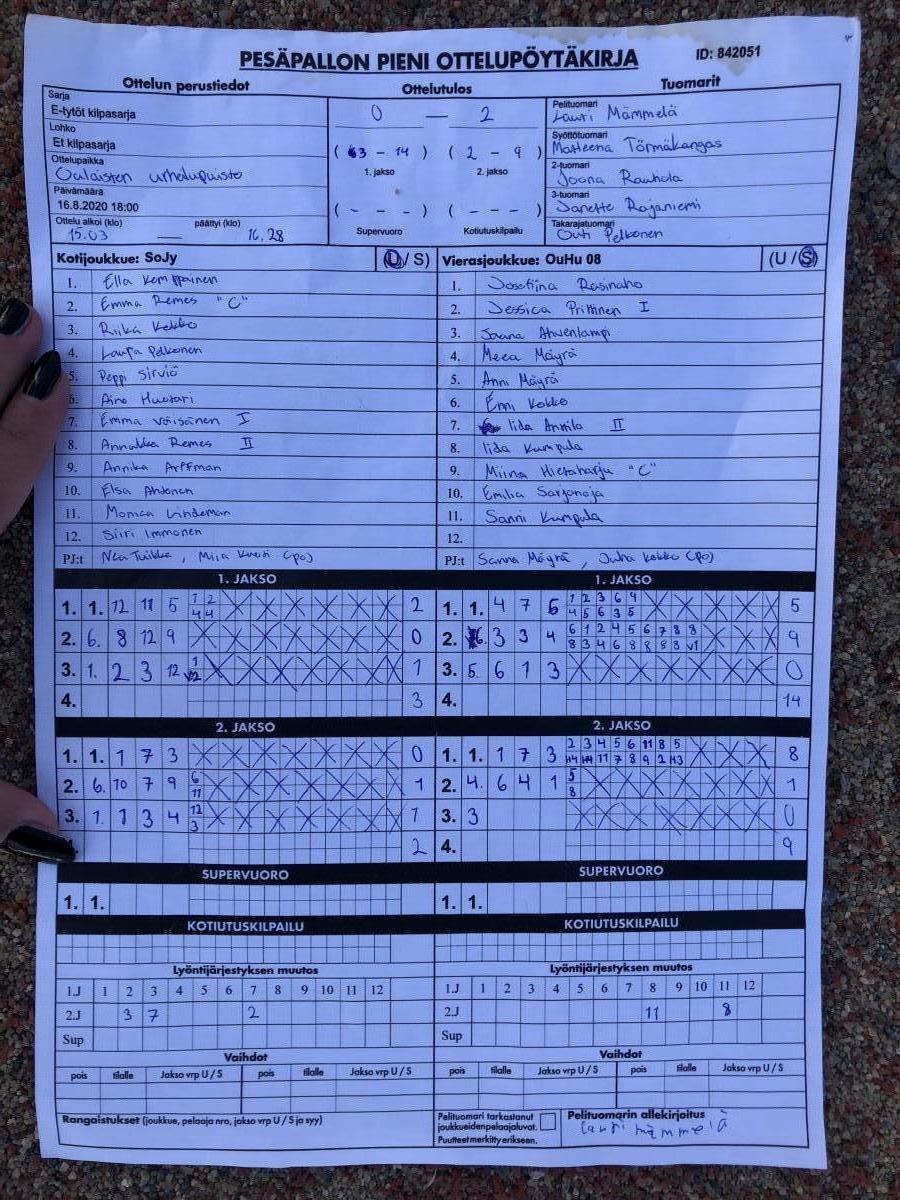 PESÄPALLON PIENI OTTELUPÖYTÄKIRJA ID: 842051
Ottelun perustiedot Ottelutulos Tuomarit
Sarja
E-tytöt kilpasarja
Lohko
Et kilpasarja
Ottelupaikka
Oulaisten urheilupuisto
Päivämäärä
16.8.2020 18:00
Ottelu alkoi (klo) päättyi (klo)
15.03 — 16.28
0 — 2
( 3 - 14 ) ( 2 - 9 )
1. jakso 2. jakso
( - - - ) ( - - - )
Supervuoro Kotiutuskilpailu
Pelituomari
Lauri Mämmelä
Syöttötuomari
Matleena Törmäkangas
2-tuomari
Joona Rauhola
3-tuomari
Janette Rajaniemi
Takarajatuomari
Outi Pelkonen
Kotijoukkue: SoJy (U / S)
1. Ella Kemppainen
2. Emma Remes "C"
3. Riika Kekko
4. Laura Pelkonen
5. Peppi Sirviö
6. Aino Huotari
7. Emma Väisänen I
8. Annukka Remes II
9. Annika Arffman
10. Elsa Ahtonen
11. Monica Lindeman
12. Siiri Immonen
PJ:t Nea Tuikka, Miia (po)
Vierasjoukkue: OuHu 08 (U / S)
1. Josefiina Rasinaho
2. Jessica Prittinen I
3. Jaana Ahvenlampi
4. Meea Mäyrä
5. Anni Mäyrä
6. Emi Kokko
7. Iida Annila II
8. Iida Kumpula
9. Miina Hietaharju "C"
10. Emilia Sarjanoja
11. Sanni Kumpula
12.
PJ:t Sanna Mäyrä, Juha Kokko (po)
1. JAKSO
1. 1. 12 11 5 1 2 2
4 4
2. 6. 8 12 9 0
3. 1. 2 3 12 1 1
V2
4. 3
1. JAKSO
1. 1. 4 7 6 1 2 3 6 4 5
4 5 6 3 5
2. 6. 3 3 4 6 1 2 4 5 6 7 8 8 9
8 3 4 6 8 8 8 8 V1
3. 5. 6 1 3 0
4. 14
2. JAKSO
1. 1. 1 7 3 0
2. 6. 10 7 9 6 1
11
3. 1. 1 3 4 12 1
3
4. 2
2. JAKSO
1. 1. 1 7 3 2 3 4 5 6 11 8 5 8
H4 H4 11 7 8 9 2 H3
2. 4. 6 4 1 5 1
8
3. 3 0
4. 9
SUPERVUORO
1. 1.
SUPERVUORO
1. 1.
KOTIUTUSKILPAILU
KOTIUTUSKILPAILU
Lyöntijärjestyksen muutos
1.J 1 2 3 4 5 6 7 8 9 10 11 12
2.J 3 7 2
Sup
Lyöntijärjestyksen muutos
1.J 1 2 3 4 5 6 7 8 9 10 11 12
2.J 11 8
Sup
Vaihdot
pois tilalle Jakso vrp U / S pois tilalle Jakso vrp U / S
Vaihdot
pois tilalle Jakso vrp U / S pois tilalle Jakso vrp U / S
Rangaistukset (joukkue, pelaaja nro, jakso vrp U / S ja syy)
Pelituomari tarkastanut
joukkueidenpelaajaluvat.
Puutteet merkitty erikseen.
Pelituomarin allekirjoitus
lauri mämmelä